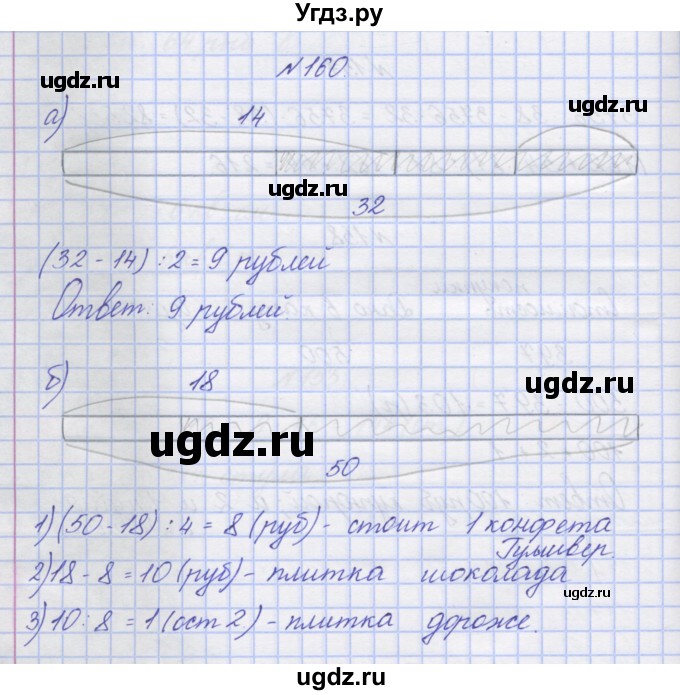 Угдз.ру
ugdz.ru
№160.
ugdz.ru
а)
14
ugdz.ru
32
(32 - 14) : 2 = 9 рублей
Ответ: 9 рублей
б)
18
ugdz.ru
ugdz.ru
50
1) (50 - 18) : 4 = 8 (руб) - стоит 1 конфета
Гулливер.
2) 18 - 8 = 10 (руб) - плитка шоколада
3) 10 : 8 = 1 (ост 2) - плитка дороже.
ugdz.ru
ugdz.ru